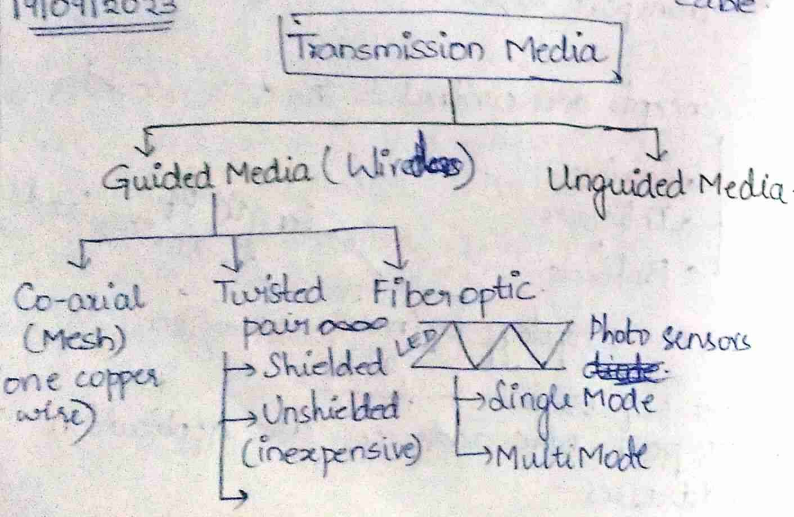 19/09/2023
Cable.
Transmission Media
Guided Media (Wired)
Unguided Media.
Co-axial
(Mesh)
one copper
wire)
Twisted
pair
Shielded
Unshielded
(inexpensive)
Fiber optic.
LED
Photo sensors
Single Mode
MultiMode